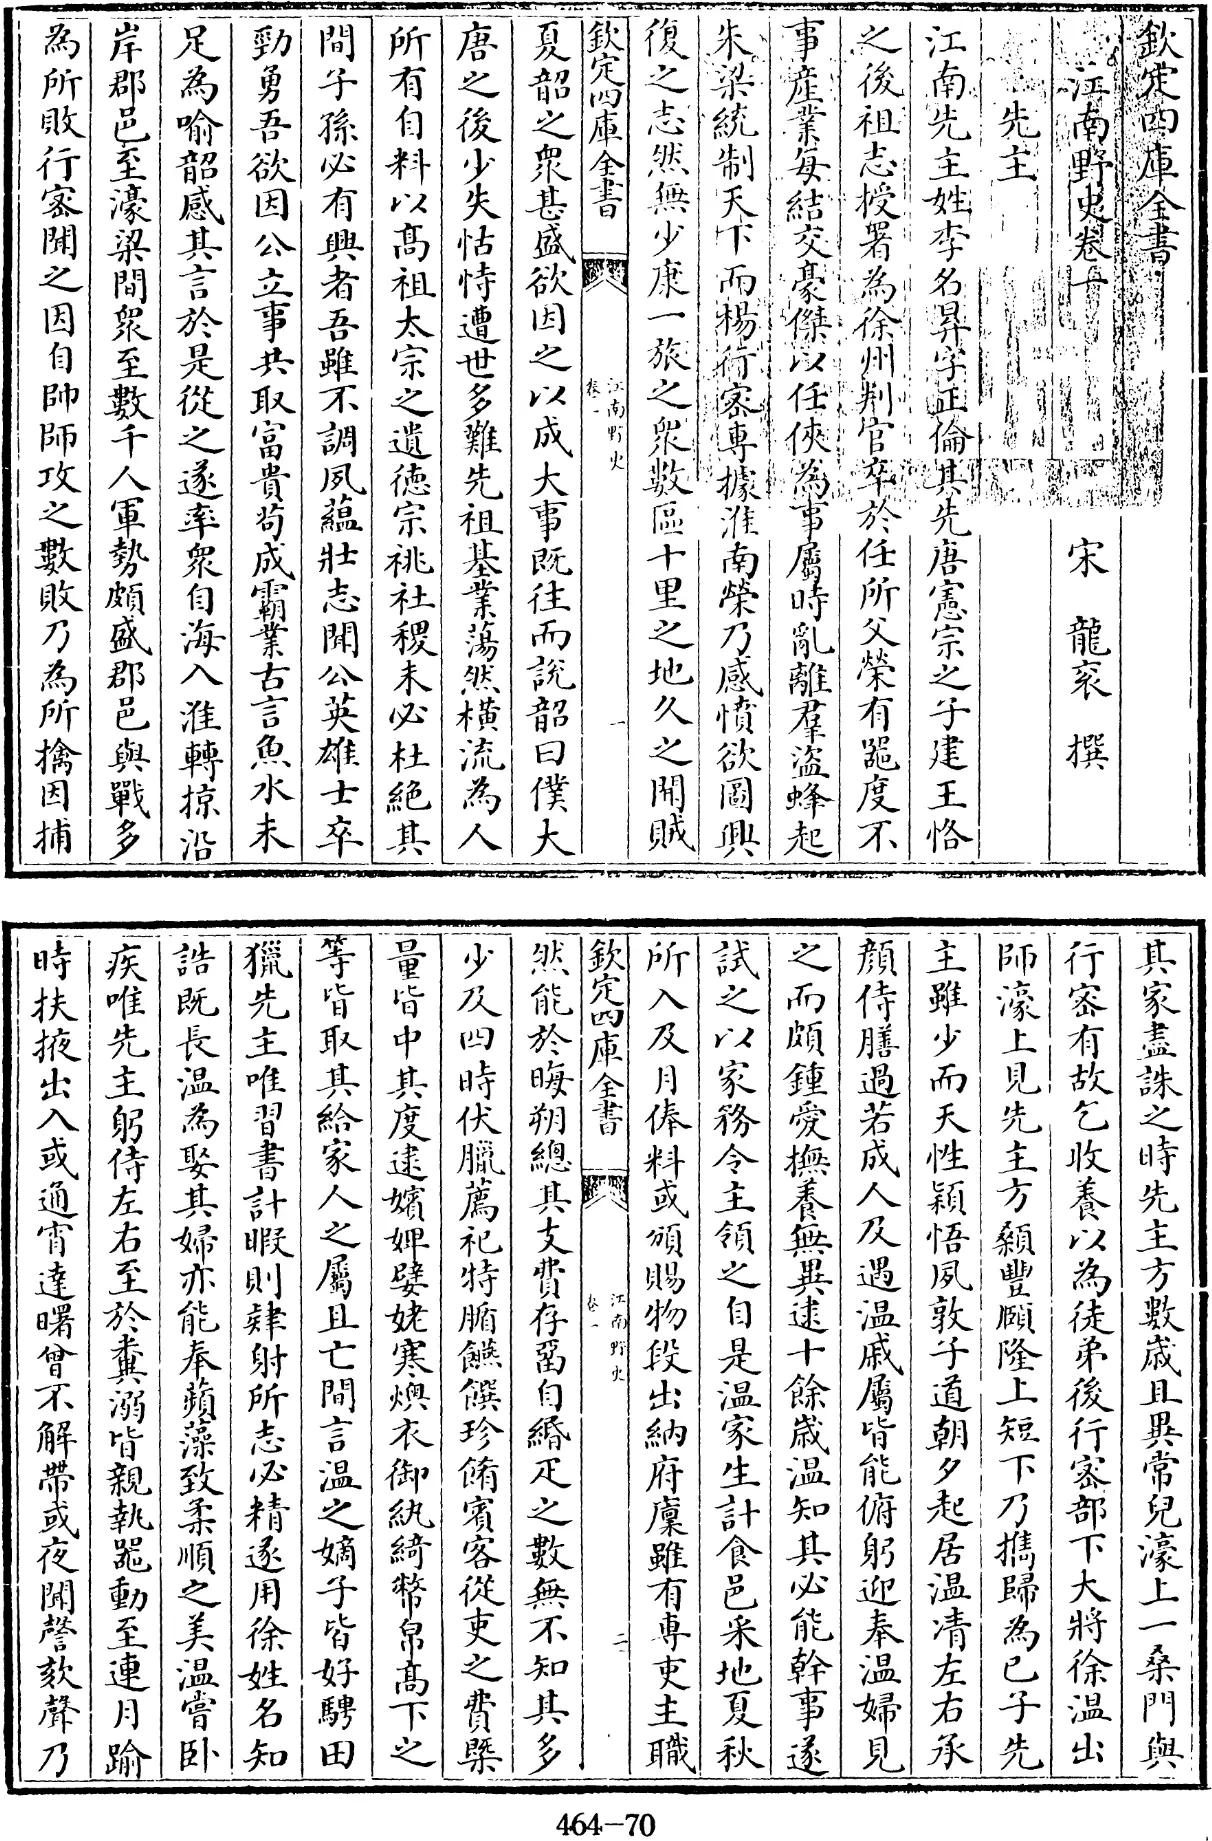 欽定四庫全書
江南野史卷一
宋 龍袞 撰
先主
江南先主姓李名昇字正倫其先唐憲宗之子建王恪
之後祖志授署為徐州判官卒於任所父榮有器度不
事産業每結交豪傑以任俠為事屬時亂離羣盜蜂起
朱梁統制天下而楊行密專據淮南榮乃感憤欲圖興
復之志然無少康一旅之衆數區十里之地久之開賊
欽定四庫全書
江南野史
卷一
一
夏韶之衆甚盛欲因之以成大事既往而說韶曰僕大
唐之後少失怙恃遭世多難先祖基業蕩然橫流為人
所有自料以髙祖太宗之遺德宗祧社稷未必杜絶其
間子孫必有興者吾雖不調夙藴壯志聞公英雄士卒
勁勇吾欲因公立事共取富貴茍成霸業古言魚水未
足為喻韶感其言於是從之遂率衆自海入淮轉掠沿
岸郡邑至濠梁間衆至數千人軍勢頗盛郡邑與戰多
為所敗行密聞之因自帥師攻之數敗乃為所擒因捕
其家盡誅之時先主方數歲且異常兒濠上一桑門與
行密有故乞收養以為徒弟後行密部下大將徐温出
師濠上見先主方顙豐頤隆上短下乃攜歸為己子先
主雖少而天性穎悟夙敦子道朝夕起居温凊左右承
顔侍膳過若成人及遇温戚屬皆能俯躬迎奉温婦見
之而頗鍾愛撫養無異逮十餘歲温知其必能幹事遂
試之以家務令主領之自是温家生計食邑采地夏秋
所入及月俸料或頒賜物段出納府廩雖有專吏主職
欽定四庫全書
江南野史
卷一
二
然能於晦朔總其支費存留自緡疋之數無不知其多
少及四時伏臘薦祀特腯饌饌珍餚賓客從吏之費槩
量皆中其度逮嬪婢嬖姥寒燠衣御紈綺幣帛髙下之
等皆取其給家人之屬且亡間言温之嫡子皆好騁田
獵先主唯習書計暇則肄射所志必精遂用徐姓名知
誥既長温為娶其婦亦能奉蘋藻致柔順之美温嘗卧
疾唯先主躬侍左右至於糞溺皆親執器動至連月踰
時扶掖出入或通宵達曙曾不解帶或夜聞謦欬聲乃
464-70